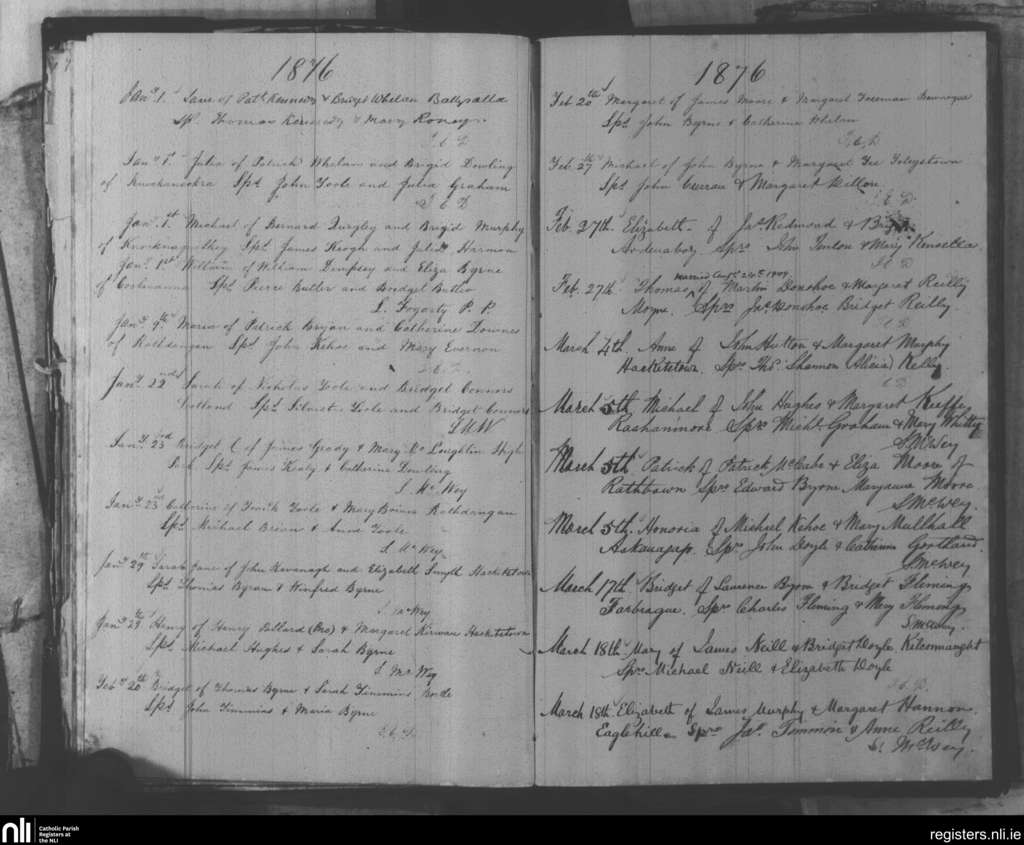 1876
Jany 1. Jane of Patk Kennedy & Bridget Whelan Ballysalla
Sps Thomas Kennedy & Mary Roney
Jany 1st Julia of Patrick Whelan and Brigid Dowling
of Knockanookra Sps John Toole and Julia Graham
Jany 1st Michael of Bernard and Brigid Murphy
of Sps James Keogh and Julia Harmon
Jany 1st William of William Dempsey and Eliza Byrne
of Sps Pierre Butler and Bridget Butler
L. Fogarty P. P.
Jany 9th Maria of Patrick Bryan and Catherine Downes
of Rathdangan Sps John Kehoe and Mary Everson
Jany 22nd Sarah of Nicholas Toole and Bridget Connors
Sps Toole and Bridget Connors
Jany 23rd Bridget C of James Grady & Mary McLoughlin High
Park Sps James Kealy & Catherine Dowling
S. McWey
Jany 23rd Catherine of Toole & Mary Brien Rathdangan
Sps Michael Brien & Anne Toole
S. McWey
Jany 29th Sarah Jane of John Kavanagh and Elizabeth Smyth Hacketstown
Sps Thomas Byrne & Winifred Byrne
S. McWey
Jany 29th Henry of Henry Pollard (Pro) & Margaret Kirwan Hacketstown
Sps Michael Hughes & Sarah Byrne
S. McWey
Feby 20th Bridget of Thomas Byrne & Sarah Timmins
Sps John Timmins & Maria Byrne
1876
Feb 20th Margaret of James Moore & Margaret Freeman
Sps John Byrne & Catherine Whelan
Feb 27th Michael of John Byrne & Margaret
Sps John Curran & Margaret
Feb. 27th. Elizabeth of Jas Redmond &
Sprs John & Mary Kinsella
Married
Feb. 27th. Thomas of Martin Donohoe & Margaret Reilly
Moyne. Sprs Jas Donohoe Bridget Reilly.
March 4th. Anne of John Hutton & Margaret Murphy
Hacketstown. Sprs Ths. Shannon Alicia Reilly.
March 5th Michael of John Hughes & Margaret Keeffe
Rathanmore Sprs Michl. Graham & Mary Whitty
S McWey
March 5th Patrick of Patrick McCabe & Eliza Moore of
Rathbawn Sprs Edward Byrne Maryanne Moore
S McWey.
March 5th. Honoria of Michael Kehoe & Mary Mulhall
Sprs John Doyle & Catherine
S McWey
March 17th Bridget of Laurence Byrne & Bridget Fleming
Farbrague. Sprs Charles Fleming & Mary Fleming
S McWey.
March 18th Mary of James Neill & Bridget Doyle. Kilconnaught
Sprs Michael Neill & Elizabeth Doyle
March 18th Elizabeth of James Murphy & Margaret Hannon.
Eaglehill. Sprs Jas. Timmon & Anne Reilly
S. McWey.
nli Catholic Parish
Registers at
the NLI
registers.nli.ie